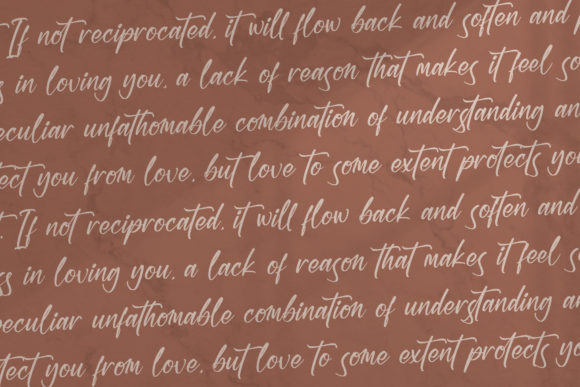 If not reciprocated, it will flow back and soften and
s in loving you, a lack of reason that makes it feel so
peculiar unfathomable combination of understanding an
tect you from love, but love to some extent protects you
t. If not reciprocated, it will flow back and soften and
ss in loving you, a lack of reason that makes it feel s
peculiar unfathomable combination of understanding an
otect you from love, but love to some extent protects yo